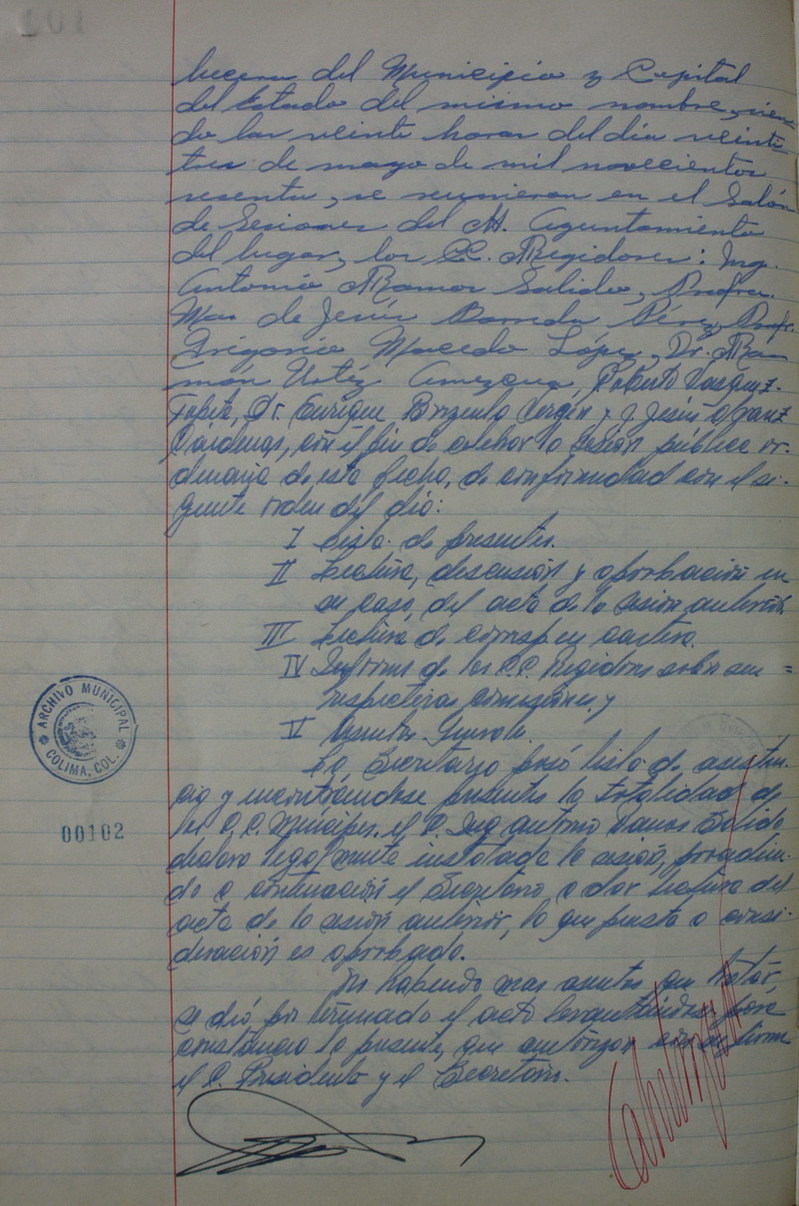 becera del Municipio y Capital
del Estado del mismo nombre, sien
do las veinte horas del día veinti
tres de mayo de mil novecientos
sesenta, se reunieron en el Salón
de Sesiones del H. Ayuntamiento
del lugar, los CC. Regidores: Ing.
Antonio Ramos Salido, Profra.
Ma. de Jesús Barreda Pérez, Profr.
Gregorio Macedo López, Dr. Ra
món Amezcua, Roberto Vasquez
Dr. Enrique y J. Jesús
Cárdenas, con el fin de celebrar la sesión pública or-
dinaria de esta fecha, de conformidad con el si-
guiente orden del día:
I Lista de presentes.
II Lectura, discusión y aprobación en
su caso, del acta de la sesión anterior.
III Lectura de corresp en cartera.
IV Informes de los C.C. Regidores sobre sus =
respectivas comisiones, y
V Asuntos Generales.
El Secretario pasó lista de asisten-
cia y encontrándose presentes la totalidad de
los C.C. Munícipes, el C. Ing Antonio Ramos Salido
declaró legalmente instalada la sesión, procedien-
do a continuación el Secretario a dar lectura del
acta de la sesión anterior, la que puesta a consi-
deración es aprobada.
No habiendo mas asuntos que tratar
se dió por terminado el acto levantándose para
constancia la presente, que autorizan con su firma
el C. Presidente y el Secretario.
ARCHIVO MUNICIPAL
COLIMA, COL.
00102